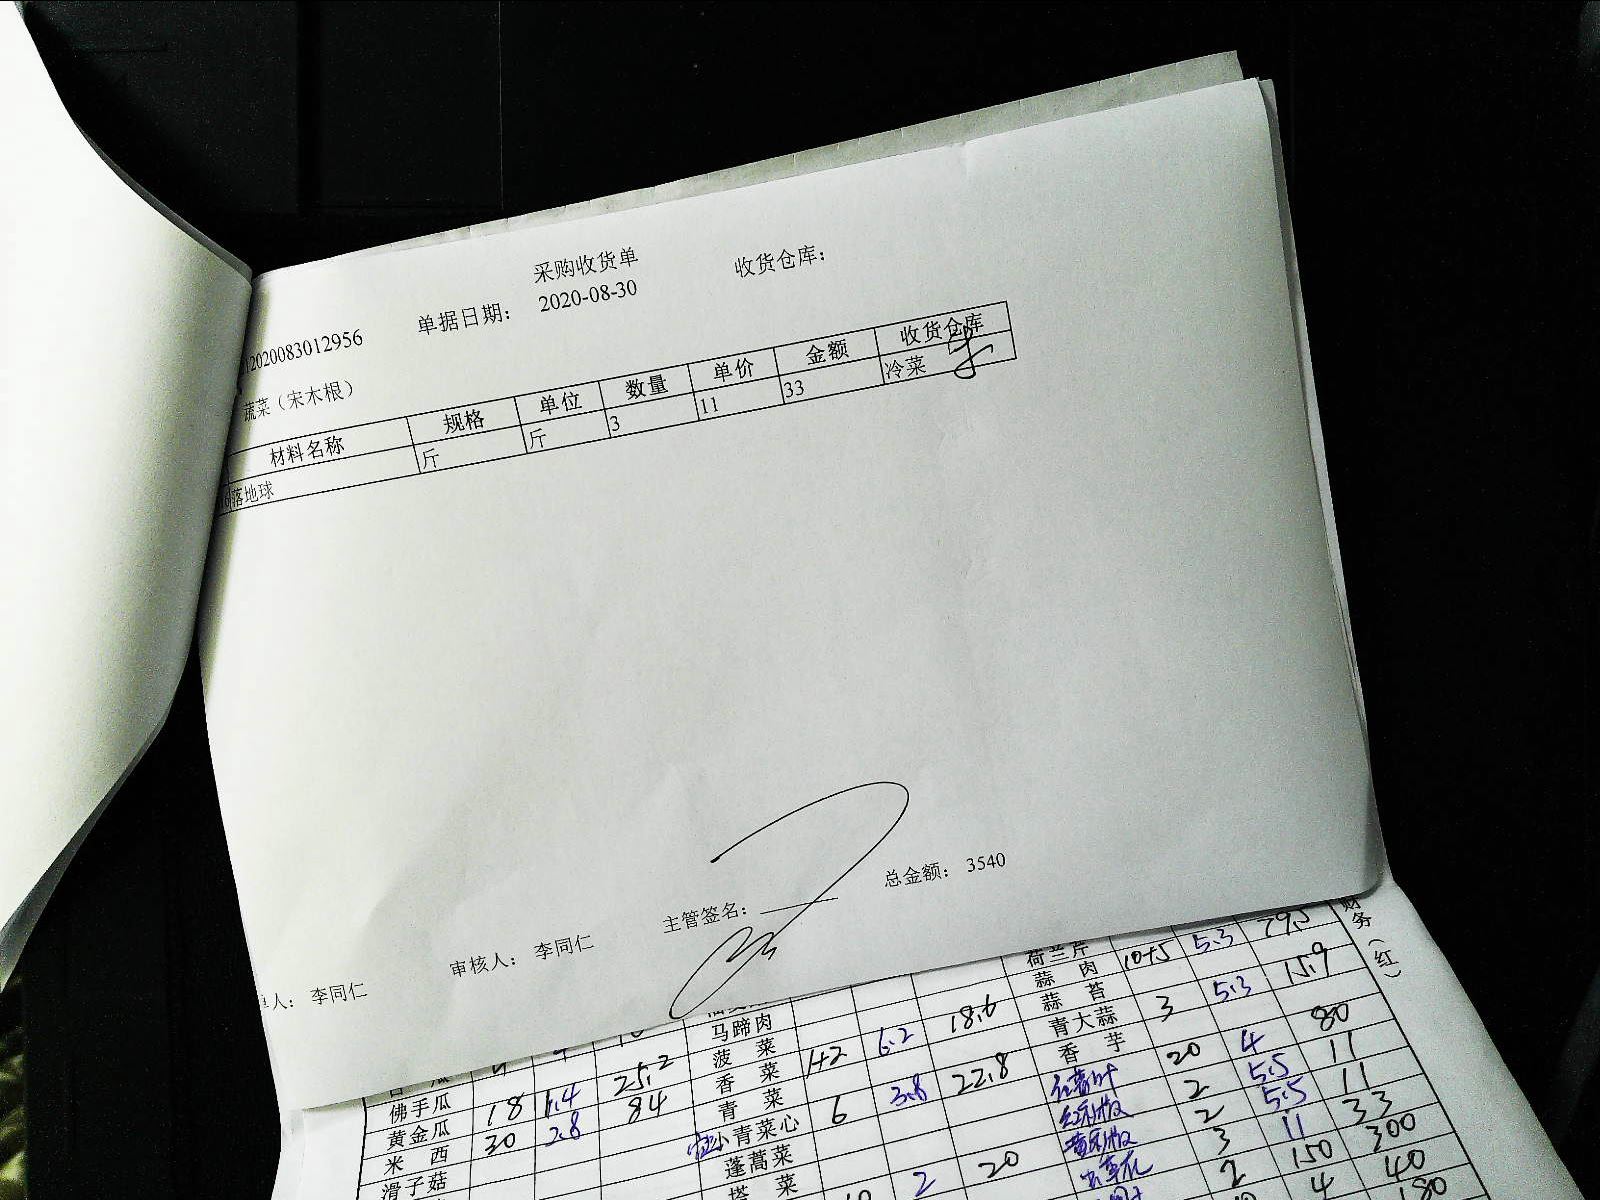 采购收货单
2020083012956 单据日期： 2020-08-30 收货仓库：
蔬菜（宋木根）
材料名称 规格 单位 数量 单价 金额 收货仓库
落地球 斤 斤 3 11 33 冷菜
总金额： 3540
人： 李同仁 审核人： 李同仁 主管签名：
财务（红）
荷兰芹 10+5 5.3 79.5
蒜肉
马蹄肉 蒜苔 3 5.3 15.9
菠菜 1+2 6.2 18.6 青大蒜
25.2 香菜 香芋 20 4 80
佛手瓜 18 1.4 84 青菜 6 3.8 22.8 2 5.5 11
黄金瓜 30 2.8 小青菜心 2 5.5 11
米西 蓬蒿菜 3 11 33
滑子菇 塔菜 2 20 2 150 300
4 40
180